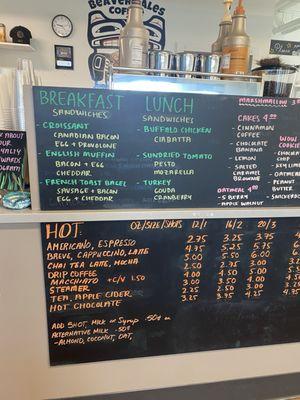 BEAVER TALES
COFFEE
BREAKFAST
SANDWICHES
- CROISSANT
CANADIAN BACON
EGG + PROVOLONE
- ENGLISH MUFFIN
BACON + EGG
CHEDDAR
- FRENCH TOAST BAGEL
SAUSAGE + BACON
EGG + CHEDDAR
LUNCH
SANDWICHES
- BUFFALO CHICKEN
CIABATTA
- SUNDRIED TOMATO
PESTO
MOZARELLA
- TURKEY
GOUDA
CRANBERRY
MARSHMALLOW
CAKES 4.00
- CINNAMON
COFFEE
- CHOCOLATE
BANANA
- LEMON
- SALTED
CARAMEL
OATMEAL 4.00
- 3 BERRY
- APPLE WALNUT
WOW
COOKIE
- CHOCOLATE
CHIP
- KEY LIME
- OATMEAL
- PEANUT
BUTTER
- SNICKER
ABOUT
HOT OZ/SIZE/SHOTS 12/1 16/2 20/3
AMERICANO, ESPRESSO 2.75 3.25 3.75
BREVE, CAPPUCCINO, LATTE
CHAI TEA LATTE, MOCHA
DRIP COFFEE
MACCHIATO +C/V 1.50
STEAMER
TEA, APPLE CIDER
HOT CHOCOLATE
ADD SHOT, MILK OR SYRUP .50¢
ALTERNATIVE MILK .50¢
- ALMOND, COCONUT, OAT,